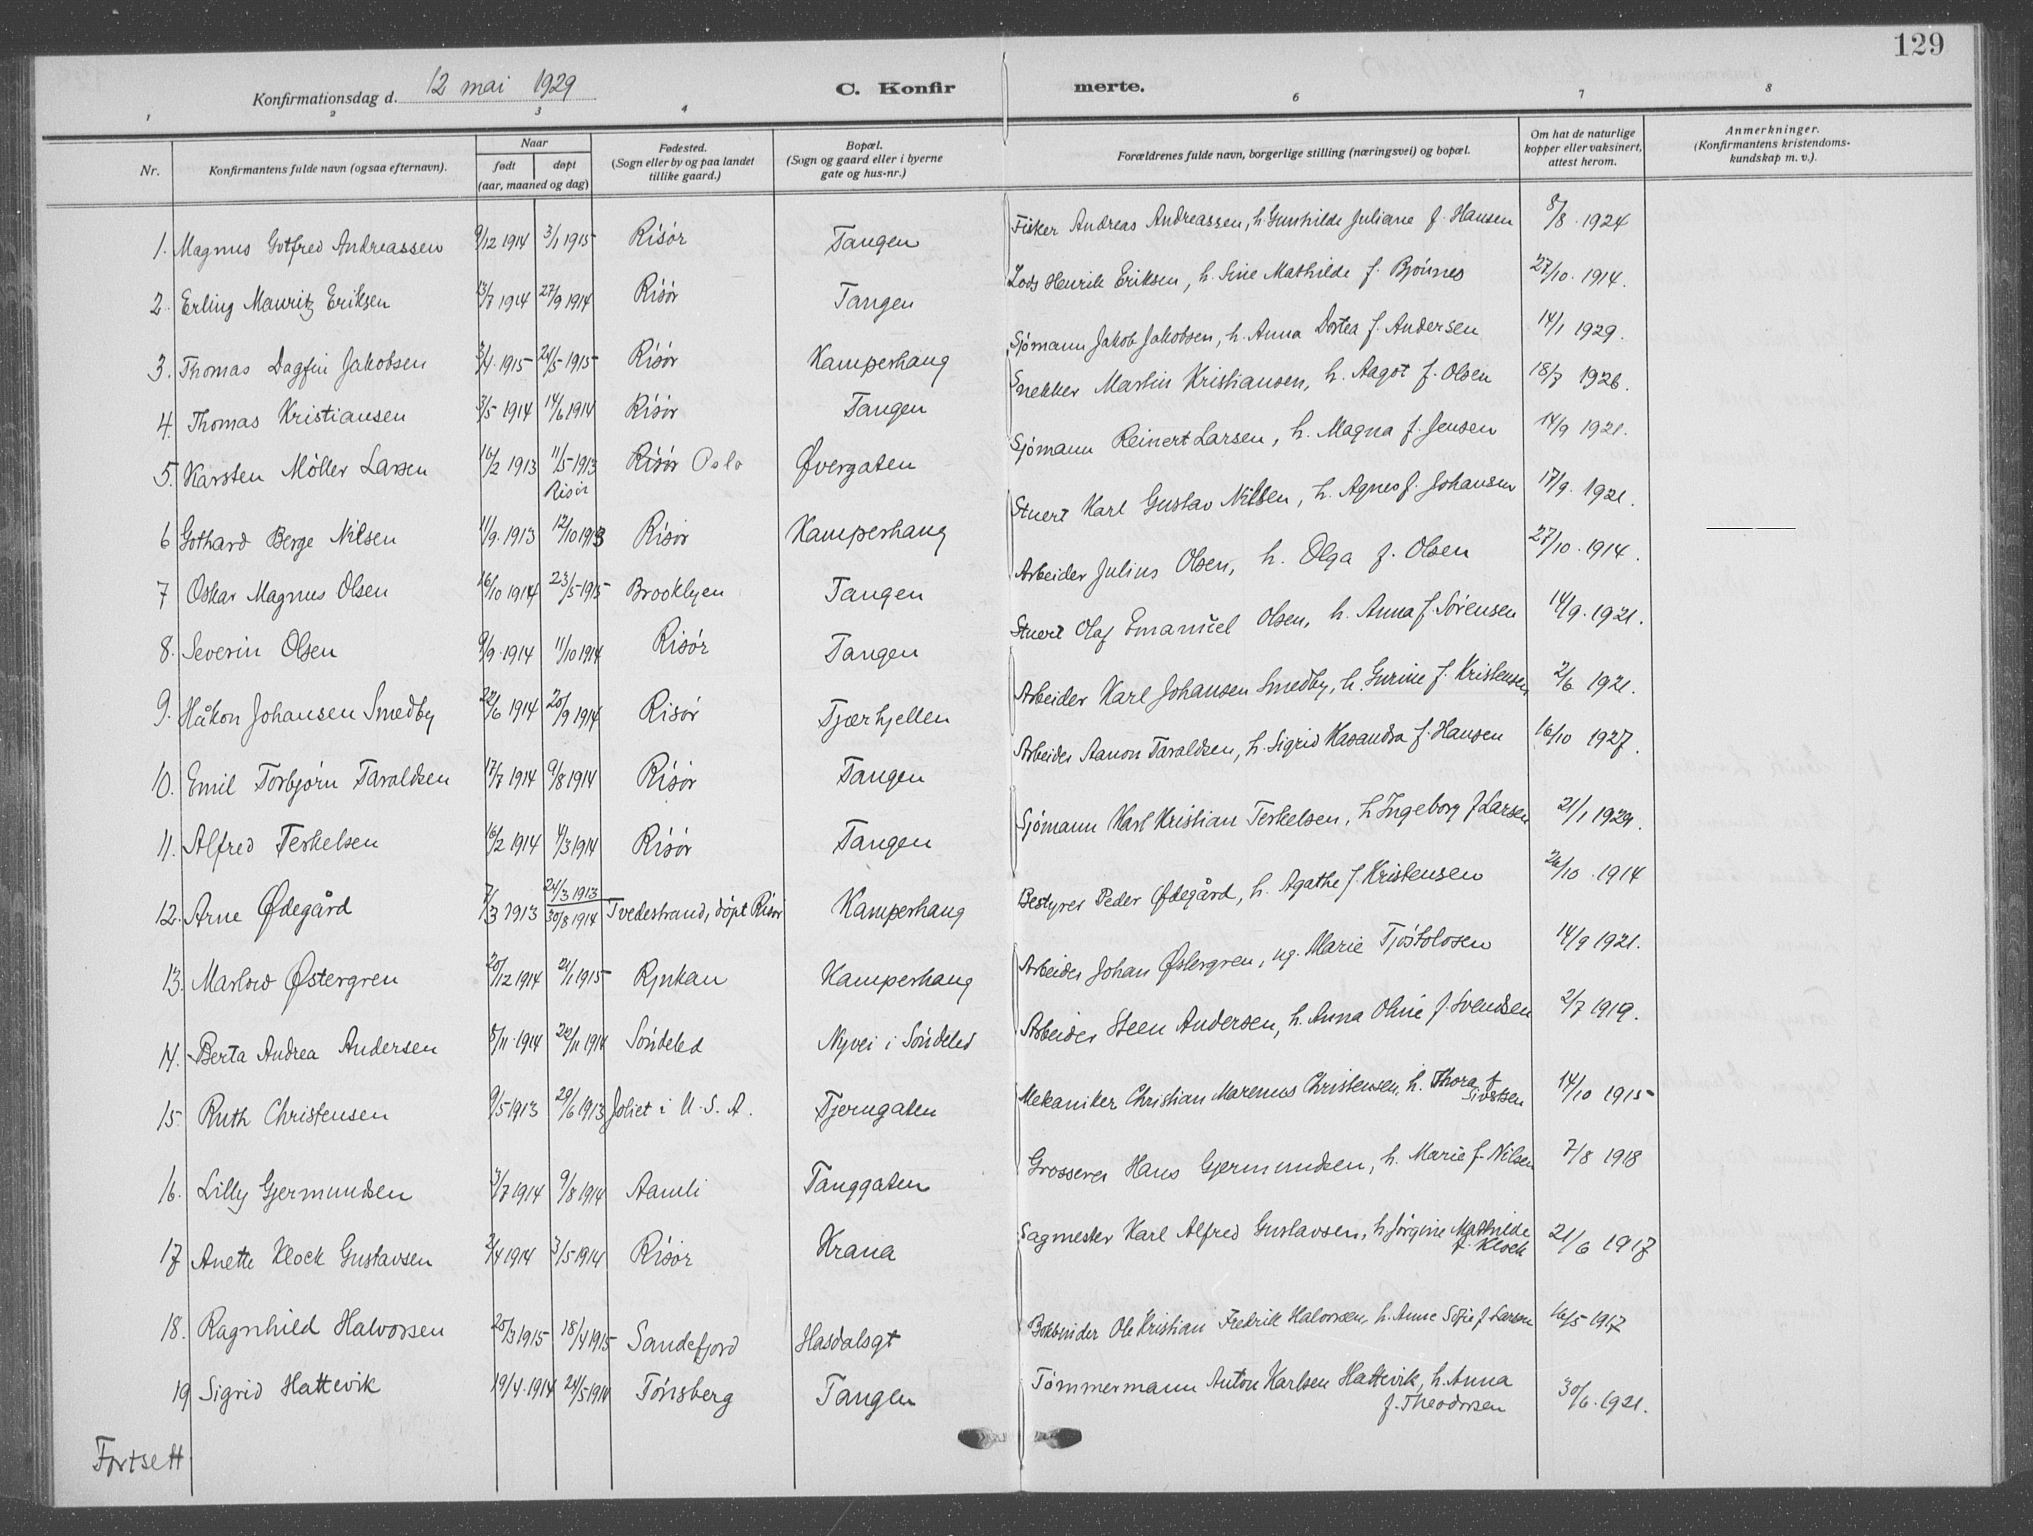 129
Konfirmationsdag d. 12 mai 1929
C. Konfirmerte.
1 2 3 4 6 7 8
Nr. Konfirmantens fulde navn (ogsaa efternavn). Naar født døpt (aar, maaned og dag) Fødested. (Sogn eller by og paa landet tillike gaard.) Bopæl. (Sogn og gaard eller i byerne gate og hus-nr.) Forældrenes fulde navn, borgerlige stilling (næringsvei) og bopæl. Om hat de naturlige kopper eller vaksinert, attest herom. Anmerkninger. (Konfirmantens kristendomskundskap m. v.).
1. Magnus Gotfred Andreassen 9/12 1914 3/1 1915 Risør Tangen Fisker Andreas Andreassen, h. Gunhilde Juliane f. Hansen 8/8 1924
2. Erling Mauritz Eriksen 13/7 1914 27/9 1914 Risør Tangen Lods Henrik Eriksen, h. Sine Mathilde f. Bjønnes 27/10 1914.
3. Thomas Dagfin Jakobsen 3/4 1915 24/5 1915 Risør Kamperhaug Sjømann Jakob Jakobsen, h. Anna Dortea f. Andersen 14/1 1929.
4. Thomas Kristiansen 3/5 1914 14/6 1914 Risør Tangen Snekker Martin Kristiansen, h. Aagot f. Olsen 18/7 1926.
5. Karsten Møller Larsen 16/2 1913 11/5 1913 Risør Risør Oslo Øvergaten Sjømann Reinert Larsen, h. Magna f. Jensen 14/9 1921.
6 Gothard Berge Nilsen 11/9 1913 12/10 1913 Risør Kamperhaug Stuert Karl Gustav Nilsen, h. Agnes f. Johansen 17/9 1921.
7 Oskar Magnus Olsen 16/10 1914 23/5 1915 Brooklyen Tangen Arbeider Julius Olsen, h. Olga f. Olsen 27/10 1914.
8. Severin Olsen 9/9 1914 11/10 1914 Risør Tangen Stuert Olaf Emanuel Olsen, h. Anna f. Sørensen 14/9 1921.
9. Håkon Johansen Smedby 22/6 1914 20/9 1914 Risør Tjærhjellen Arbeider Karl Johansen Smedby, h. Gurine f. Kristensen 2/6 1921.
10. Emil Torbjørn Taraldsen 17/7 1914 9/8 1914 Risør Tangen Arbeider Aanon Taraldsen, h. Sigrid Kasandra f. Hansen 16/10 1927.
11. Alfred Terkelsen 16/2 1914 1/3 1914 Risør Tangen Sjømann Karl Kristian Terkelsen, h. Ingeborg f. Larsen 21/1 1929.
12. Arne Ødegård 7/3 1913 24/3 1913 30/8 1914 Tvedestrand, døpt Risør Kamperhaug Bestyrer Peder Ødegård, h. Agathe f. Kristensen 26/10 1914
13. Marlow Østergren 20/12 1914 21/1 1915 Rjukan Kamperhaug Arbeider Johan Østergren, ug. Marie Tjøstolosen 14/9 1921.
14. Berta Andrea Andersen 8/11 1914 22/11 1914 Søndeled Nyvei i Søndeled Arbeider Steen Andersen, h. Anna Oline f. Svendsen 2/7 1919.
15 Ruth Christensen 9/5 1913 29/6 1913 Joliet i U.S.A. Tjerngaten Mekaniker Christian Marenus Christensen, h. Thora f. Sivertsen 14/10 1915
16. Lilly Gjermundsen 3/7 1914 9/8 1914 Aamli Tanggaten Grosserer Hans Gjermundsen, h. Marie f. Nilsen 7/8 1918
17 Anette Klock Gustavsen 2/4 1914 3/5 1914 Risør Krana Sagmester Karl Alfred Gustavsen, h. Jørgine Mathilde f. Klock 21/6 1917
18. Ragnhild Halvorsen 20/3 1915 18/4 1915 Sandefjord Hasdalsgt Bokbinder Ole Kristian Fredrik Halvorsen, h. Anne Sofie f. Larsen 16/5 1917
19 Sigrid Hattevik 19/4 1914 24/5 1914 Tønsberg Tangen Tømmermann Anton Karlsen Hattevik, h. Anna f. Theodorsen 30/6 1921.
Fortsett